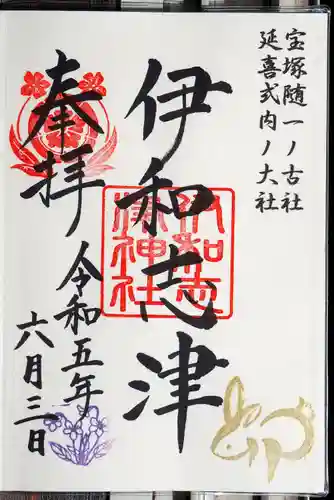 宝塚随一ノ古社
延喜式内ノ大社
伊和志津
伊和志
津神社
奉拝
令和五年
六月三日